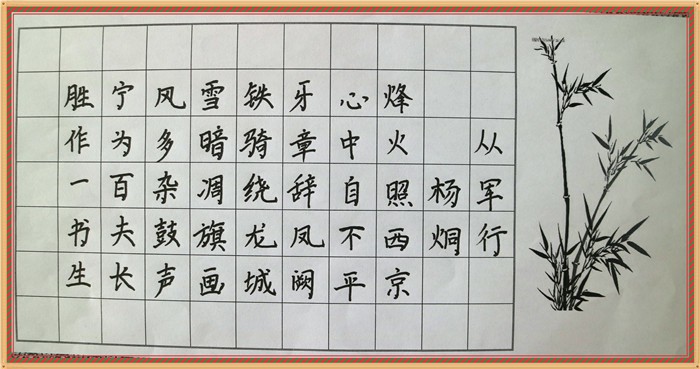 从军行
杨炯
烽火照西京
心中自不平
牙章辞凤阙
铁骑绕龙城
雪暗凋旗画
风多杂鼓声
宁为百夫长
胜作一书生